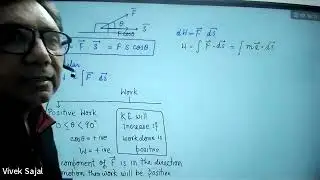 F
θ
F cosθ
S
= F S = F S cosθ
dW = F . ds
W = ∫ F . ds = ∫ m a . ds
= ∫ F . ds
Work
Positive Work
0 ≤ θ < 90°
cosθ = +ive
W = +ive
KE will
increase if
work done is
positive
component of F is in the direction
motion then work will be positive
Vivek Sajal